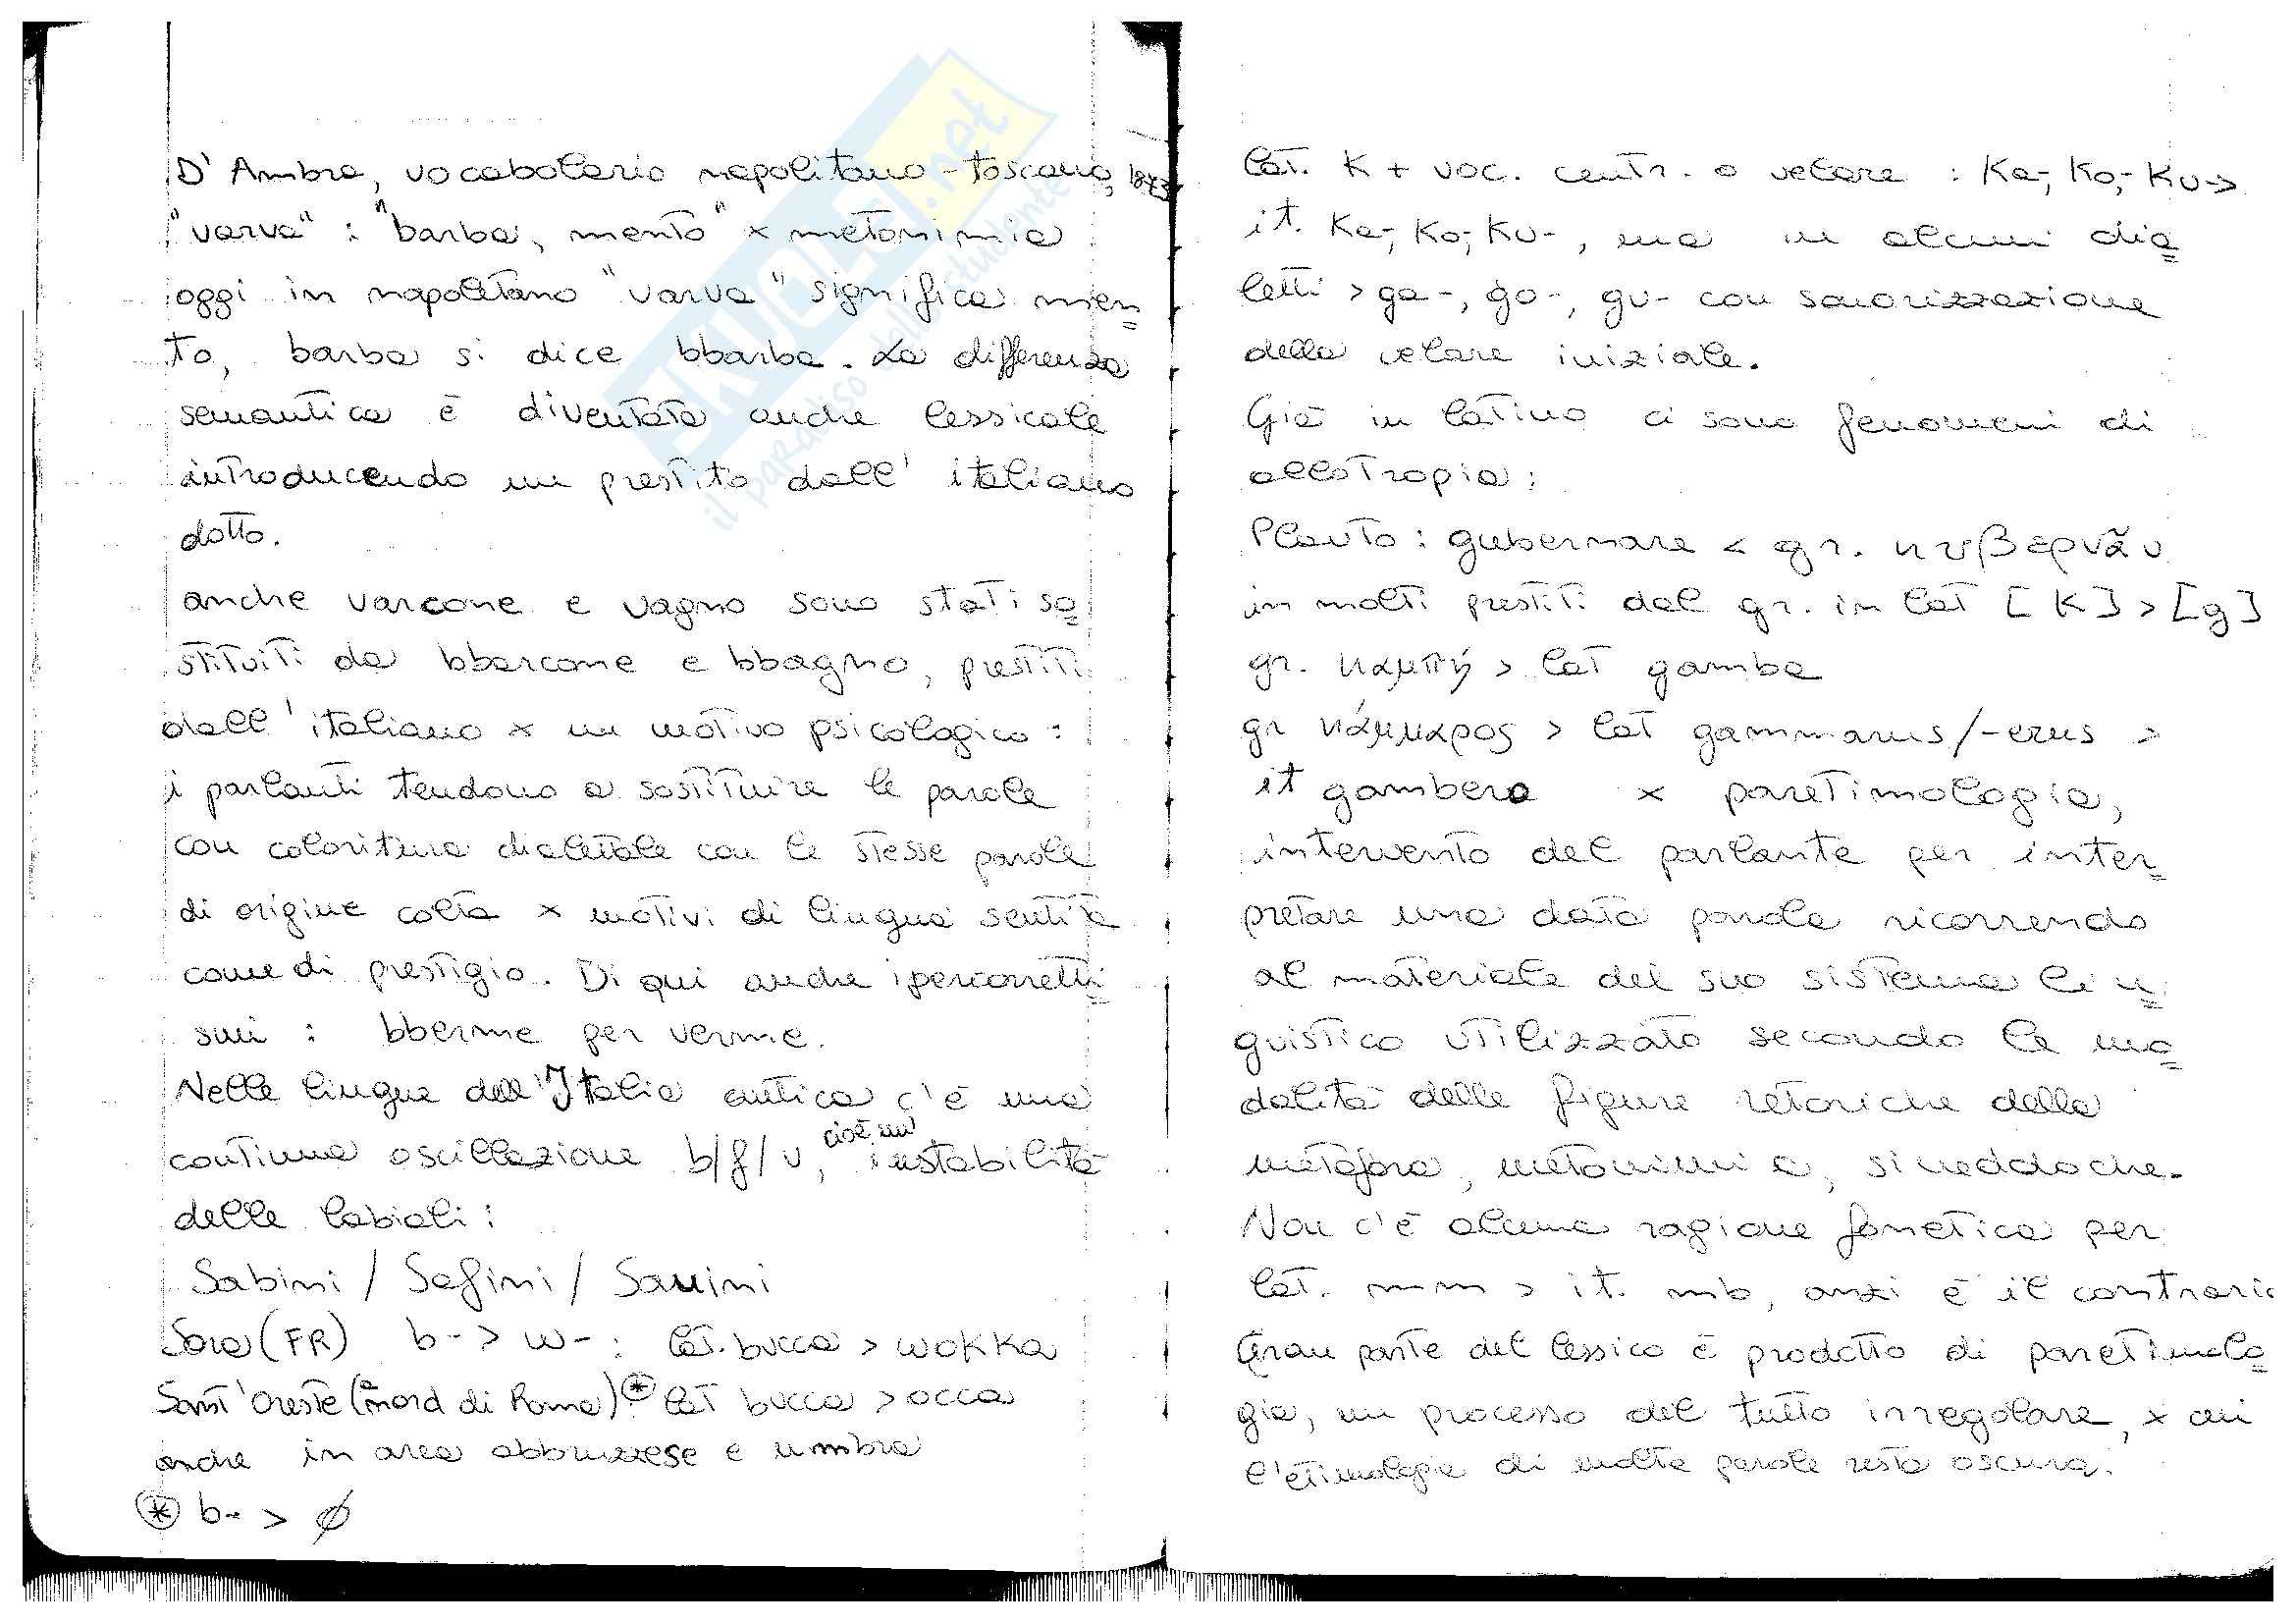 D'Ambra, vocabolario napolitano-toscano, 1873
"varva" : "barba, mento" x metonimia
oggi in napoletano "varva" significa men=
to, barba si dice bbarba. La differenza
semantica è diventata anche lessicale
introducendo un prestito dall'italiano
dotto.
anche varcone e vagno sono stati so=
stituiti da bbarcone e bbagno, prestiti
dall'italiano x un motivo psicologico :
i parlanti tendono a sostituire le parole
con coloritura dialettale con le stesse parole
di origine colta x motivi di lingua sentita
come di prestigio. Di qui anche ipercorretti=
smi : bberme per verme.
Nelle lingue dell'Italia antica c'è una
continua oscillazione b/f/v, cioè un' instabilità
delle labiali :
Sabini / Safini / Sauini
Sora (FR) b- > w- : lat. bucca > wokka
Sant'Oreste (a nord di Roma) * lat bucca > occa
anche in area abbruzzese e umbra
* b- > ø
lat. K + voc. centr. o velare : Ka-, Ko-, Ku- >
it. Ka-, Ko-, Ku-, ma in alcuni dia=
letti > ga-, go-, gu- con sonorizzazione
della velare iniziale.
Già in latino ci sono fenomeni di
allotropia :
Plauto : gubernare < gr. κυβερνᾶν
in molti prestiti dal gr. in lat [K] > [g]
gr. καμπή > lat gamba
gr κάμμαρος > lat gammarus/-erus >
it gambero x paretimologia,
intervento del parlante per inter=
pretare una data parola ricorrendo
al materiale del suo sistema lin=
guistico utilizzato secondo le mo=
dalità delle figure retoriche della
metafora, metonimia, sineddoche.
Non c'è alcuna ragione fonetica per
lat. mm > it. mb, anzi è il contrario
Gran parte del lessico è prodotto di paretimolo=
gia, un processo del tutto irregolare, x cui
l'etimologia di molte parole resta oscura.